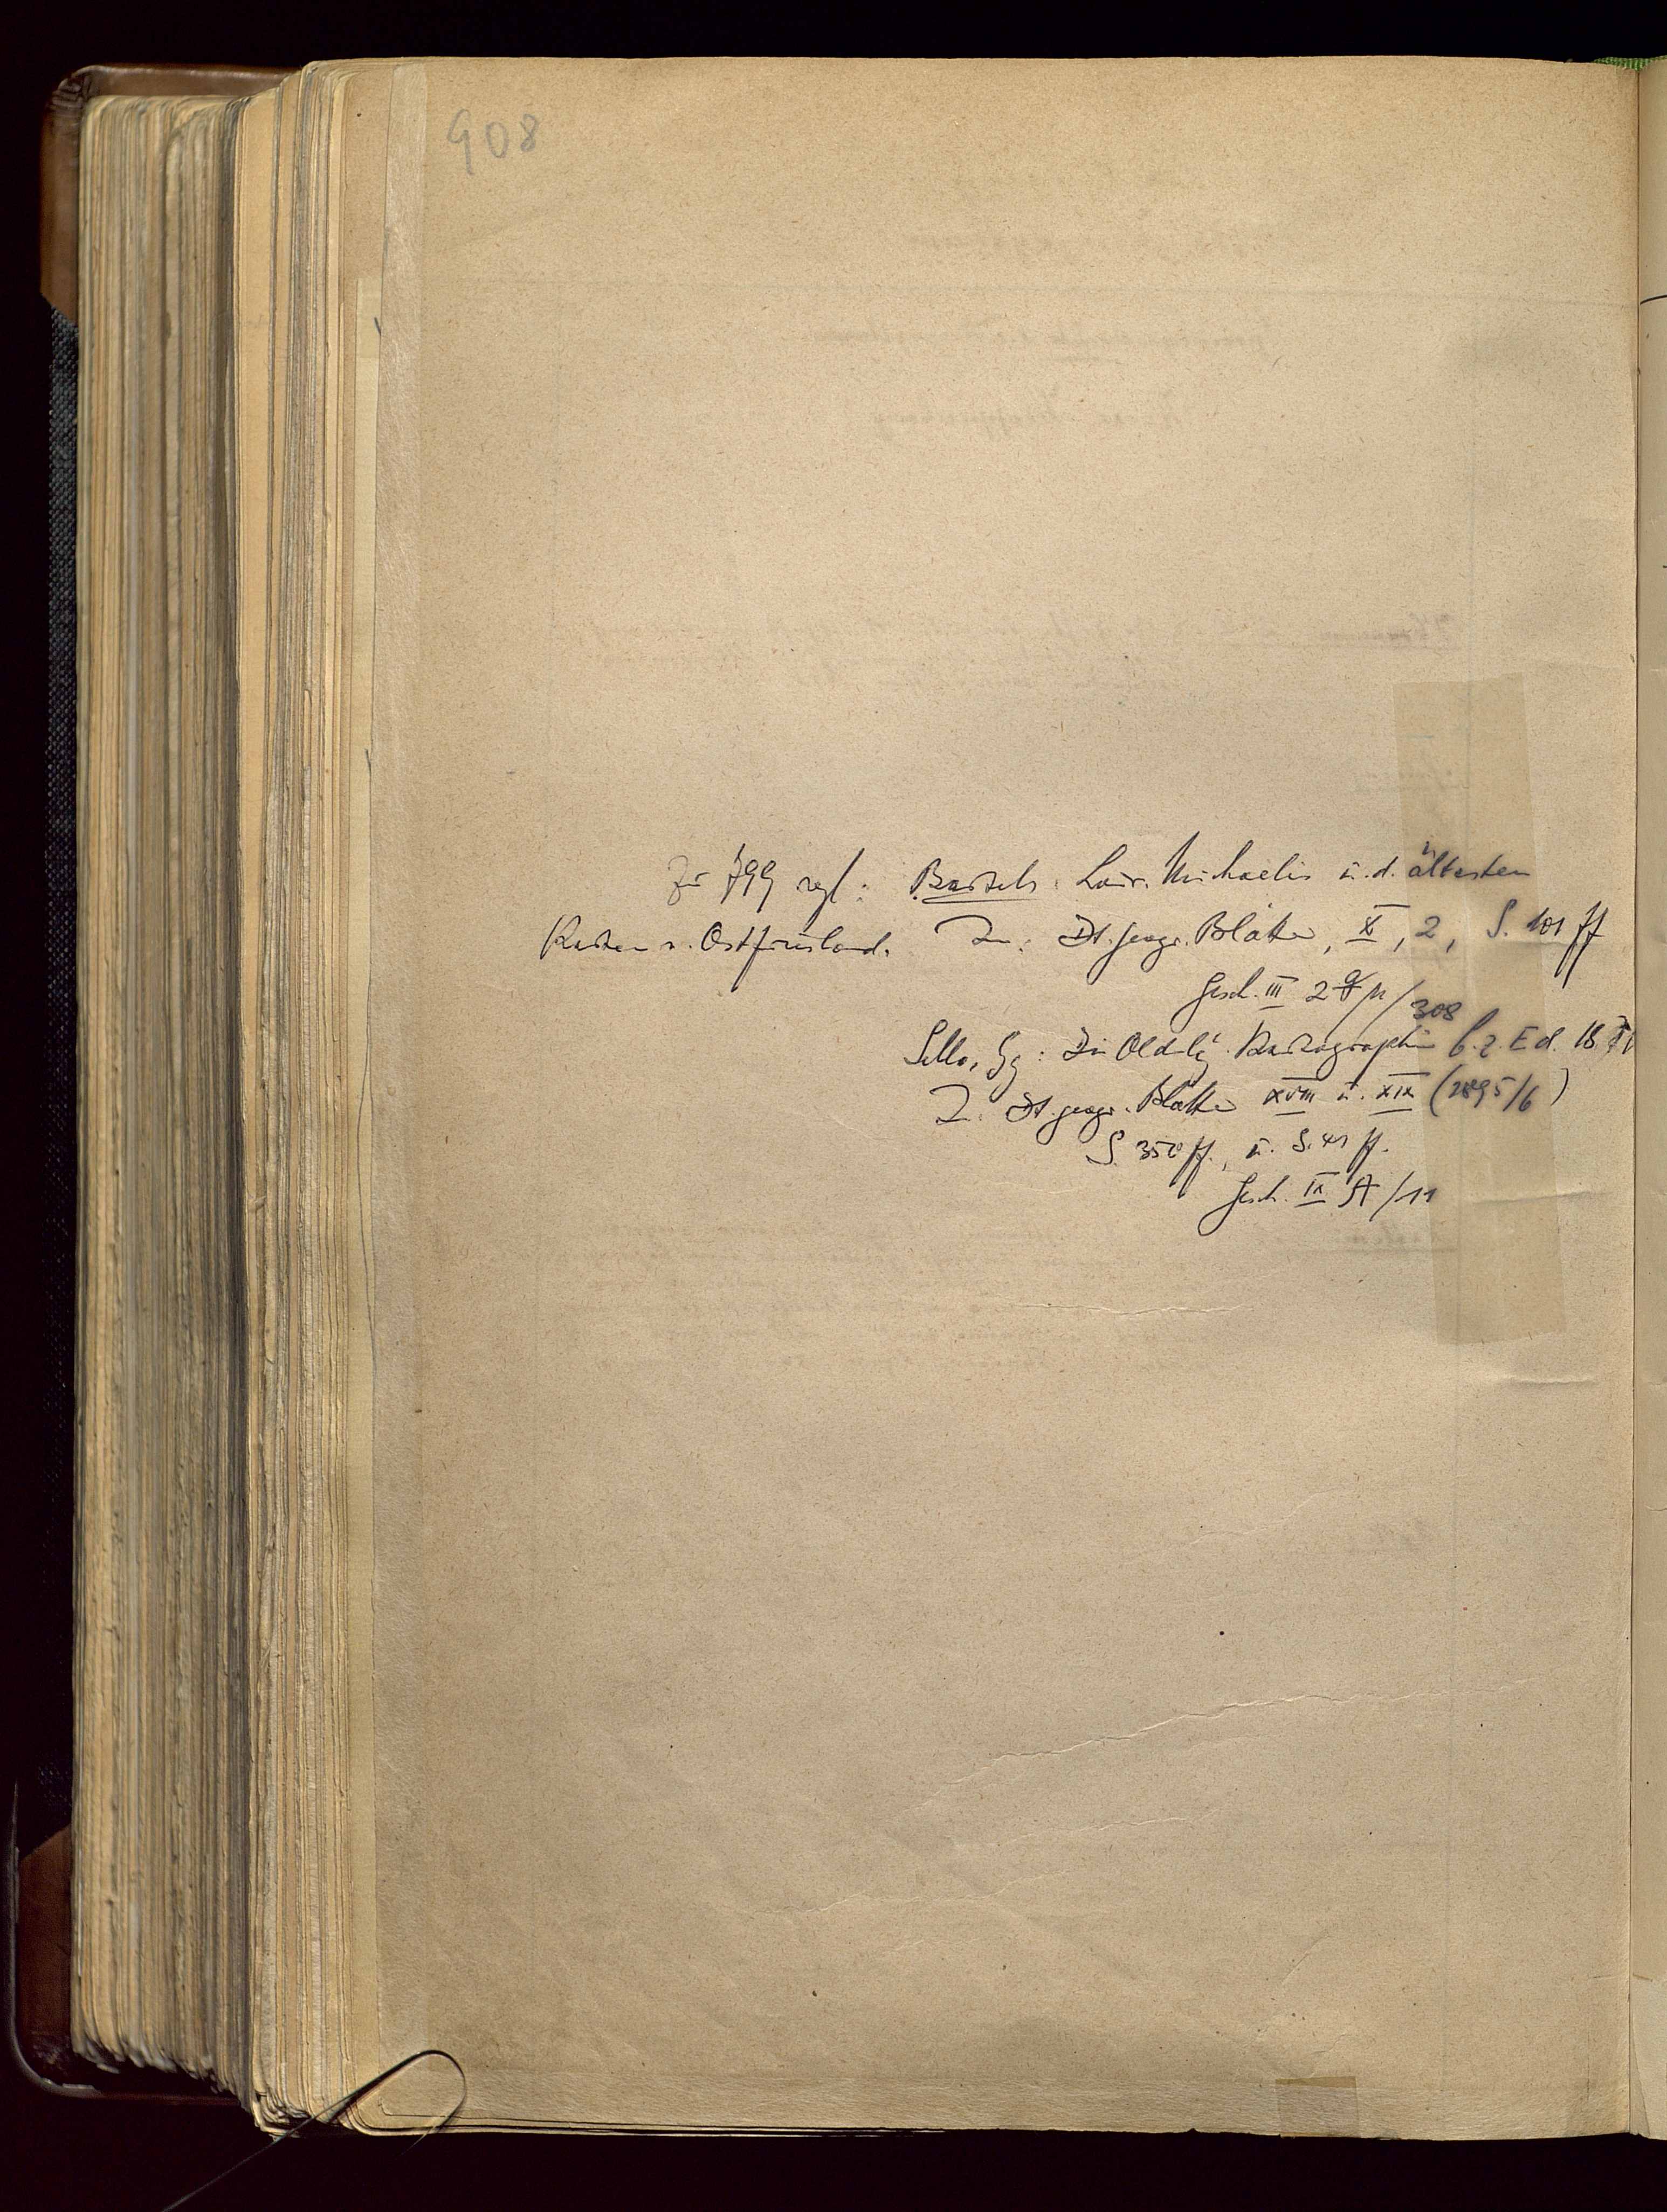 908
Zu 799 vgl: Bartels: Laur. Michaelis u. d. ältesten
Karten v. Ostfriesland. In: Dt. geogr. Blätter, X, 2, S. 101 ff
Gesch. III 2 /308
Sello, Gg: Die Oldbg. Kartographie b. z. Ed. 18.
In: Dt. geogr. Blätter XVIII u. XIX (1895/6)
S. 350 ff., u. S. 41 ff.
Gesch. IX A /11